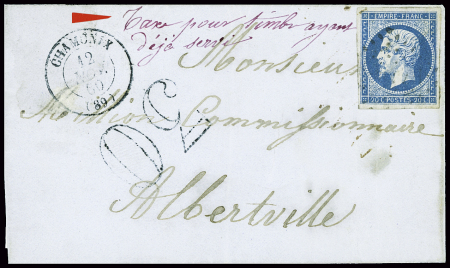 Taxe pour timbr ayant
déjà servi
CHAMONIX
12
60
(89)
EMPIRE FRANC
20c POSTES 20c
30
Monsieur
Commissionnaire
Albertville